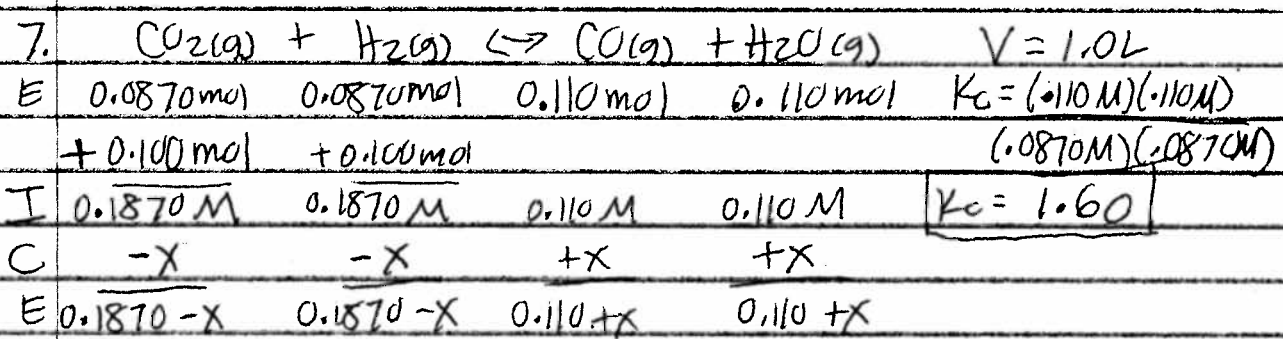 7. CO2(g) + H2(g) <-> CO(g) + H2O(g) V = 1.0L
E 0.0870mol 0.0870mol 0.110mol 0.110mol Kc = (.110M)(.110M)
+ 0.100mol + 0.100mol (.0870M)(.0870M)
I 0.1870 M 0.1870 M 0.110 M 0.110 M Kc = 1.60
C -X -X +X +X
E 0.1870 -X 0.1870 -X 0.110 +X 0.110 +X